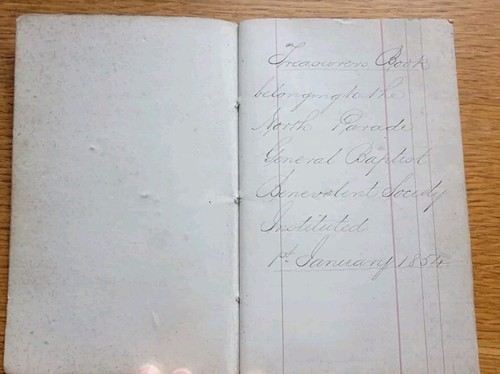 Treasurers Book
belonging to the
North Parade
General Baptist
Benevolent Society
Instituted
1st January 1854